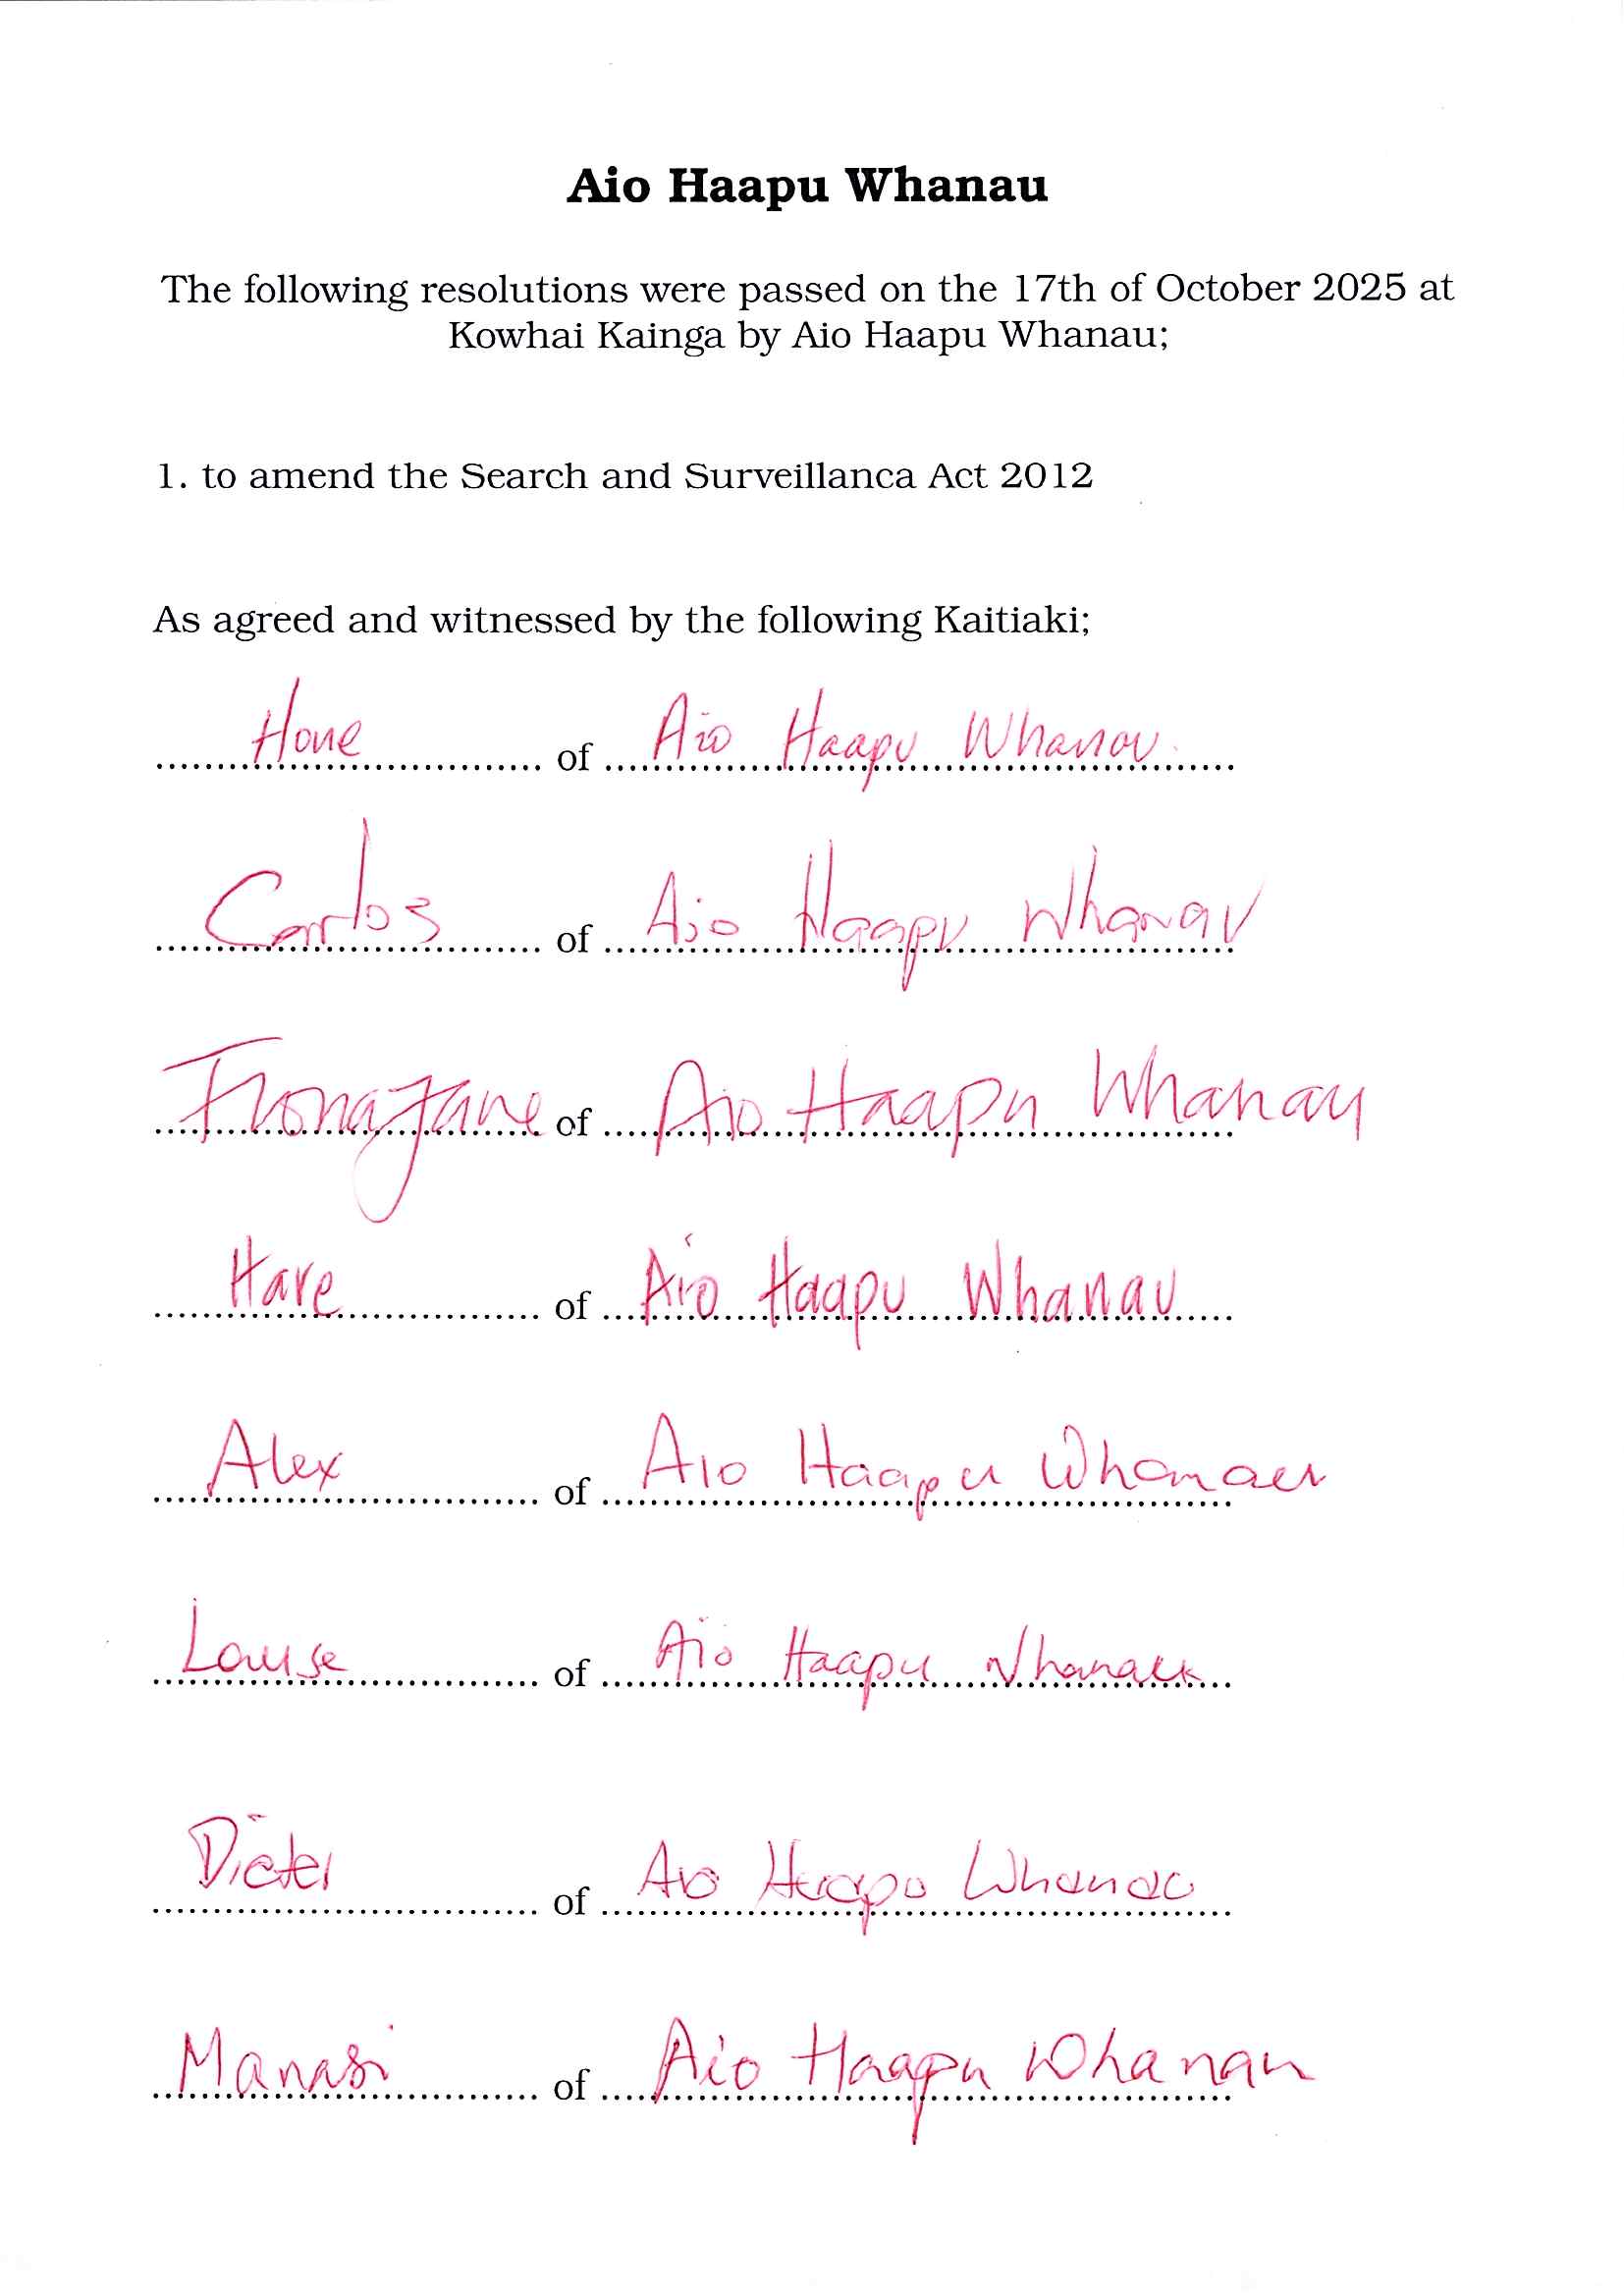 Aio Haapu Whanau
The following resolutions were passed on the 17th of October 2025 at
Kowhai Kainga by Aio Haapu Whanau;
1. to amend the Search and Surveillanca Act 2012
As agreed and witnessed by the following Kaitiaki;
Hone of Aio Haapu Whanau
Carlos of Aio Haapu Whanau
FionaJane of Aio Haapu Whanau
Hare of Aio Haapu Whanau
Alex of Aio Haapu Whanau
Louise of Aio Haapu Whanau
Dieter of Aio Haapu Whanau
Manasi of Aio Haapu Whanau